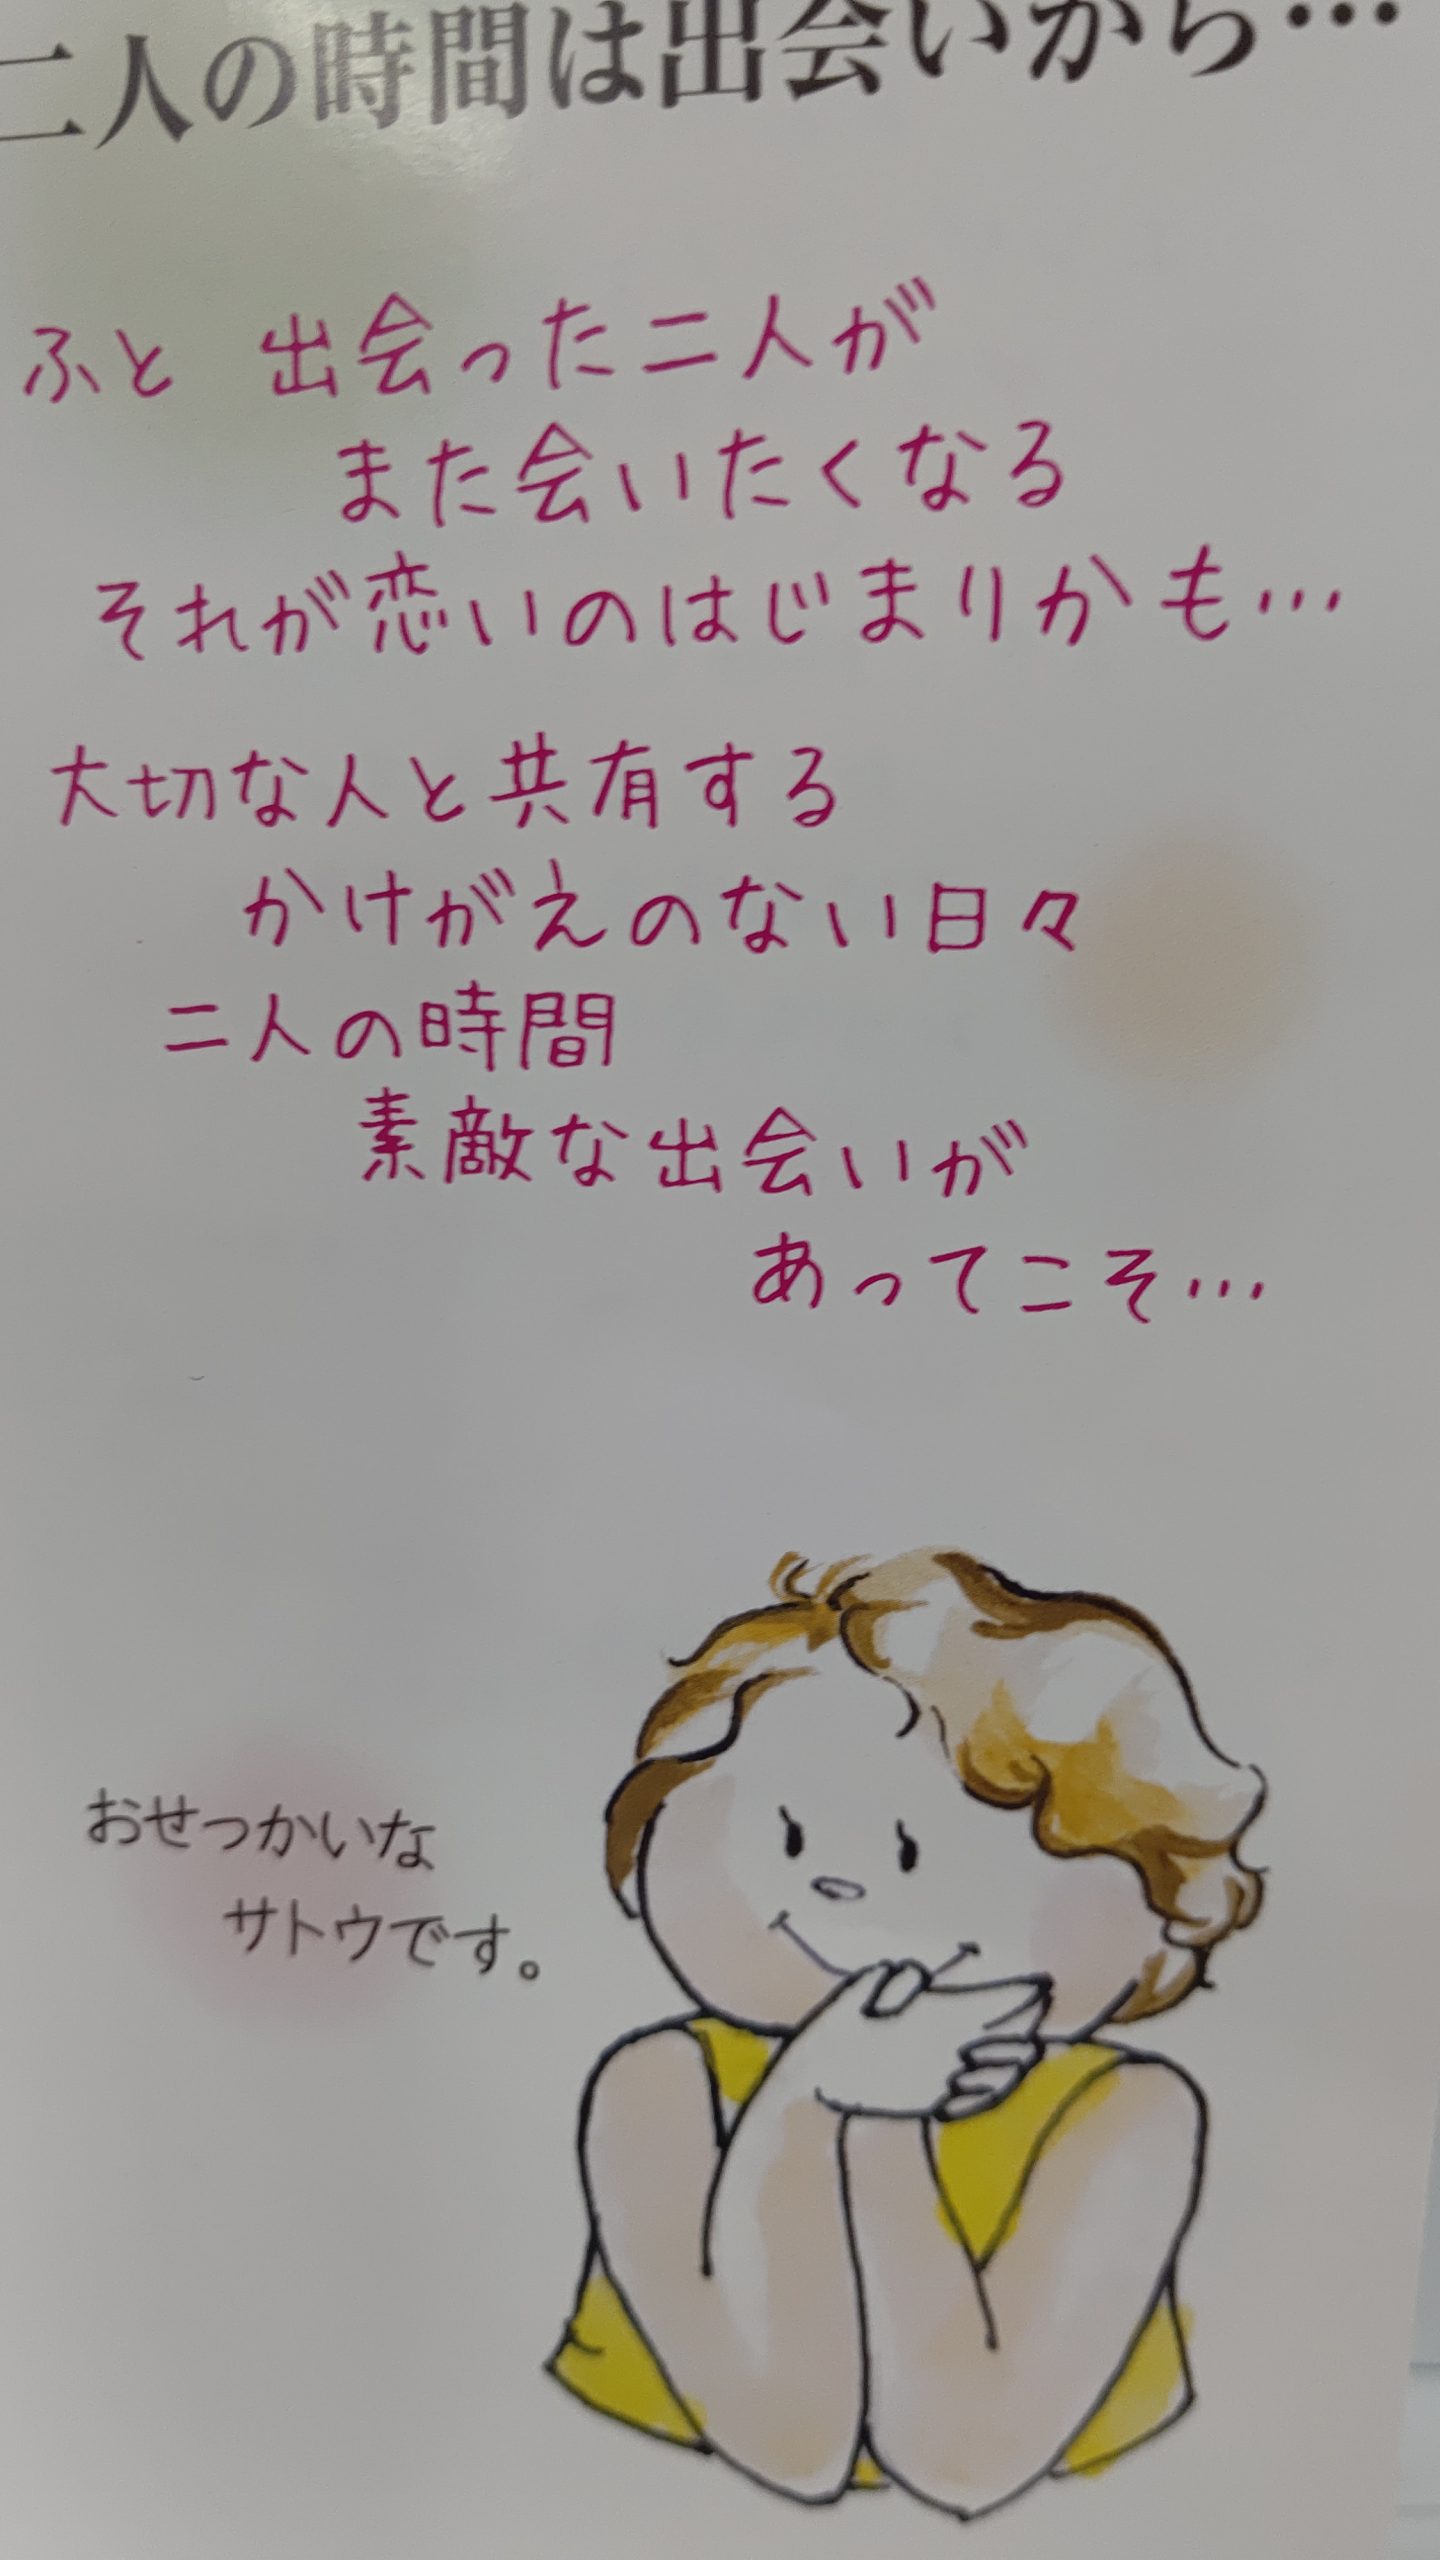 二人の時間は出会いから…
ふと 出会った二人が
また会いたくなる
それが恋いのはじまりかも…
大切な人と共有する
かけがえのない日々
二人の時間
素敵な出会いが
あってこそ…
おせっかいな
サトウです。